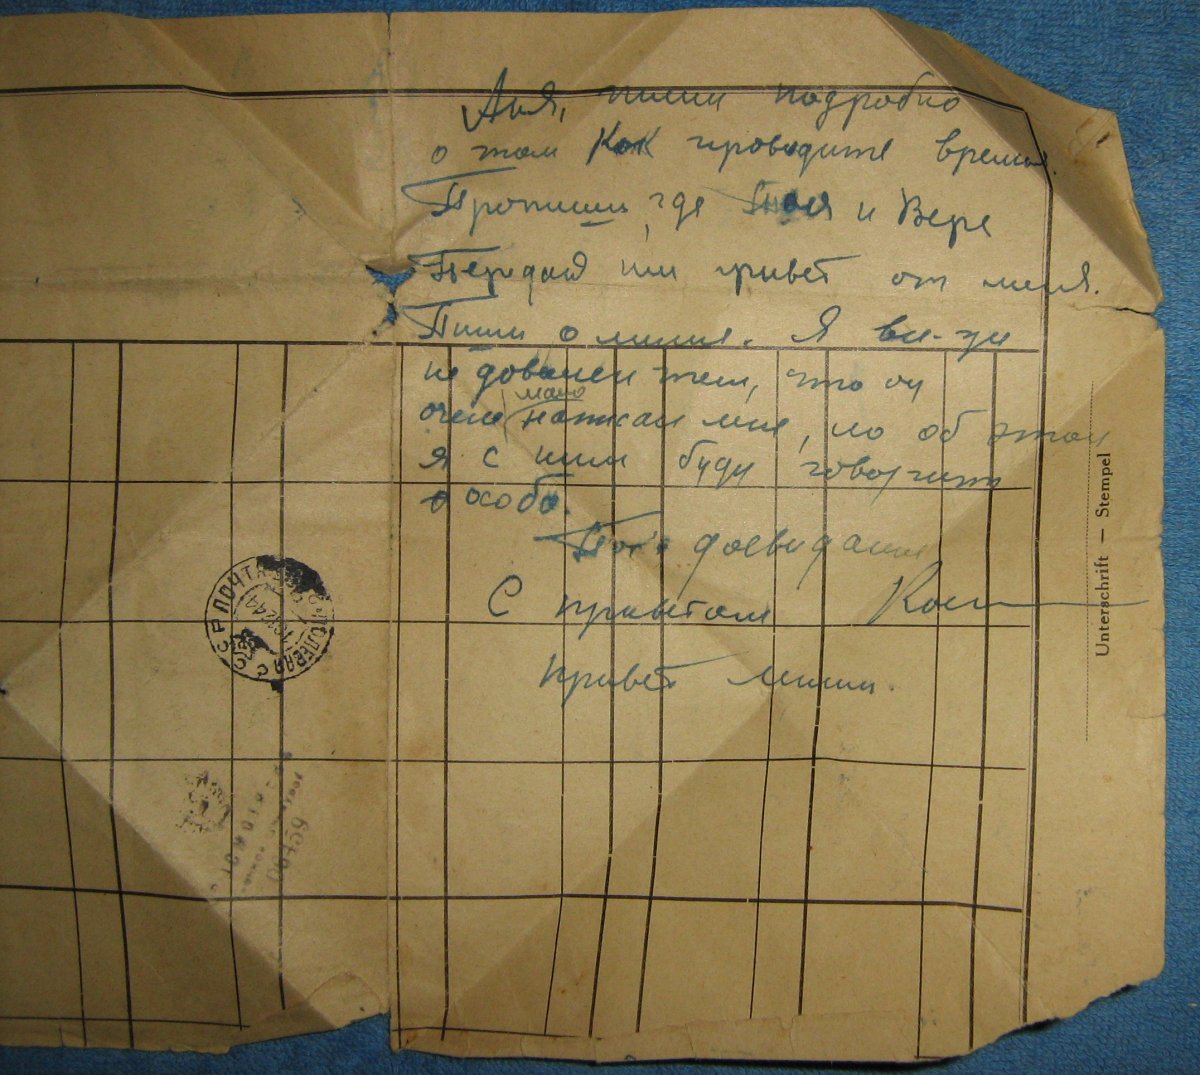 Аня, пиши подробно
о том как проводите время.
Пропиши, где и Вера
Передай им привет от меня.
Пиши о
не доволен тем, что он
очень мало написал мне, но об этом
я с ним буду говорить
особо.
Пока досвидания
С приветом
привет
Unterschrift — Stempel
ПОЧТА
ПОЛЕВАЯ
44
00759